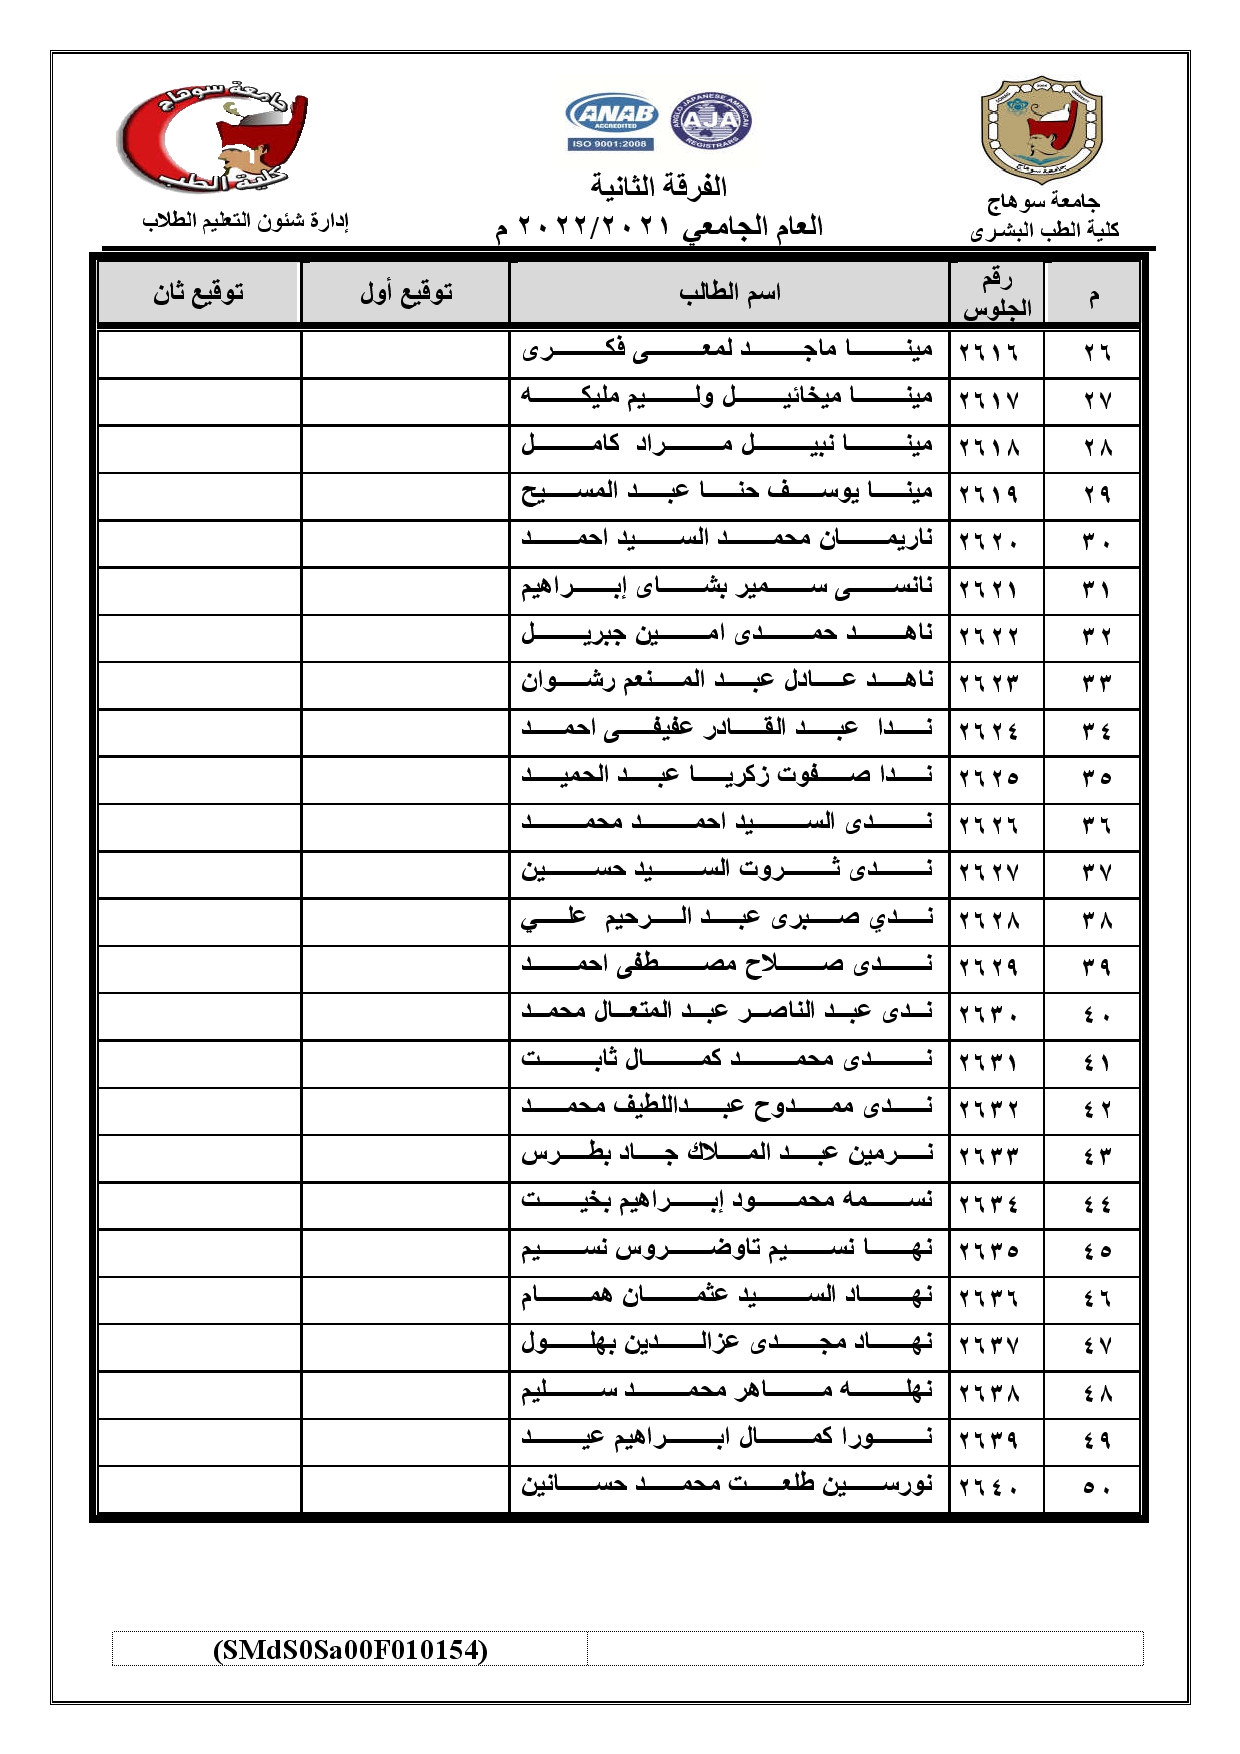 جامعة سوهاج
كلية الطب
ANAB
ACCREDITED
ISO 9001:2008
ANGLO JAPANESE AMERICAN
AJA
REGISTRARS
جامعة سوهاج
جامعة سوهاج
كلية الطب البشرى
الفرقة الثانية
العام الجامعي ٢٠٢٢/٢٠٢١ م
إدارة شئون التعليم الطلاب
م رقم الجلوس اسم الطالب توقيع أول توقيع ثان
٢٦ ٢٦١٦ مينا ماجد لمعى فكرى
٢٧ ٢٦١٧ مينا ميخائيل وليم مليكه
٢٨ ٢٦١٨ مينا نبيل مراد كامل
٢٩ ٢٦١٩ مينا يوسف حنا عبد المسيح
٣٠ ٢٦٢٠ ناريمان محمد السيد احمد
٣١ ٢٦٢١ نانسى سمير بشاى إبراهيم
٣٢ ٢٦٢٢ ناهد حمدى امين جبريل
٣٣ ٢٦٢٣ ناهد عادل عبد المنعم رشوان
٣٤ ٢٦٢٤ ندا عبد القادر عفيفى احمد
٣٥ ٢٦٢٥ ندا صفوت زكريا عبد الحميد
٣٦ ٢٦٢٦ ندى السيد احمد محمد
٣٧ ٢٦٢٧ ندى ثروت السيد حسين
٣٨ ٢٦٢٨ ندي صبرى عبد الرحيم علي
٣٩ ٢٦٢٩ ندى صلاح مصطفى احمد
٤٠ ٢٦٣٠ ندى عبد الناصر عبد المتعال محمد
٤١ ٢٦٣١ ندى محمد كمال ثابت
٤٢ ٢٦٣٢ ندى ممدوح عبداللطيف محمد
٤٣ ٢٦٣٣ نرمين عبد الملاك جاد بطرس
٤٤ ٢٦٣٤ نسمه محمود إبراهيم بخيت
٤٥ ٢٦٣٥ نها نسيم تاوضروس نسيم
٤٦ ٢٦٣٦ نهاد السيد عثمان همام
٤٧ ٢٦٣٧ نهاد مجدى عزالدين بهلول
٤٨ ٢٦٣٨ نهله ماهر محمد سليم
٤٩ ٢٦٣٩ نورا كمال ابراهيم عيد
٥٠ ٢٦٤٠ نورسين طلعت محمد حسانين
(SMdS0Sa00F010154)